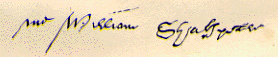 me William Shakspeare